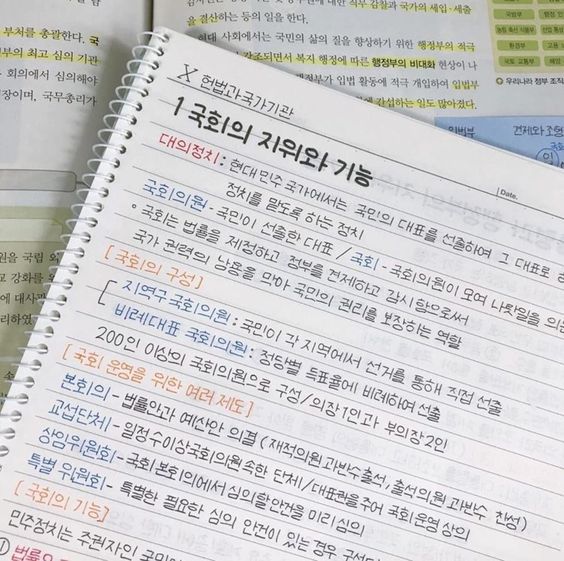 부처를 총괄한다. 국
부의 최고 심의 기관
회의에서 심의해야
장이며, 국무총리가
을 결산하는 등의 일을 한다.
현대 사회에서는 국민의 삶의 질을 향상하기 위한 행정부의 적극
강조되면서 복지 행정에 따른 행정부의 비대화 현상이 나
정부가 입법 활동에 적극 개입하여 입법부
간섭하는 일도 많아졌다.
국방부
환경부
국토 교통부
우리나라 정부 조직
입법부
견제와 조형
Ⅹ 헌법과국가기관
1 국회의 지위와 기능
Date.
대의정치 : 현대 민주 국가에서는 국민의 대표를 선출하여 그 대표로 하
정치를 맡도록 하는 정치
국회의원 - 국민이 선출한 대표 / 국회 - 국회의원이 모여 나랏일을 의논
◦ 국회는 법률을 제정하고 정부를 견제하고 감시함으로써
국가 권력의 남용을 막아 국민의 권리를 보장하는 역할
[ 국회의 구성 ]
지역구 국회의원 : 국민이 각 지역에서 선거를 통해 직접 선출
비례대표 국회의원 : 정당별 득표율에 비례하여 선출
200인 이상의 국회의원으로 구성 / 의장 1인과 부의장 2인
[ 국회 운영을 위한 여러 제도 ]
본회의 - 법률안과 예산안 의결 ( 재적의원 과반수 출석, 출석의원 과반수 찬성 )
교섭단체 - 일정수이상국회의원 속한 단체 / 대표관을 주어 국회 운영 상의
상임위원회 - 국회 본회의에서 심의할 안건을 미리 심의
특별 위원회 - 특별한 필요한 심의 안건이 있는 경우 구성
[ 국회의 기능 ]
민주정치는 주권자인 국민의
① 법률의
원을 국립 외
강화를 위
에서 대사만
리하였